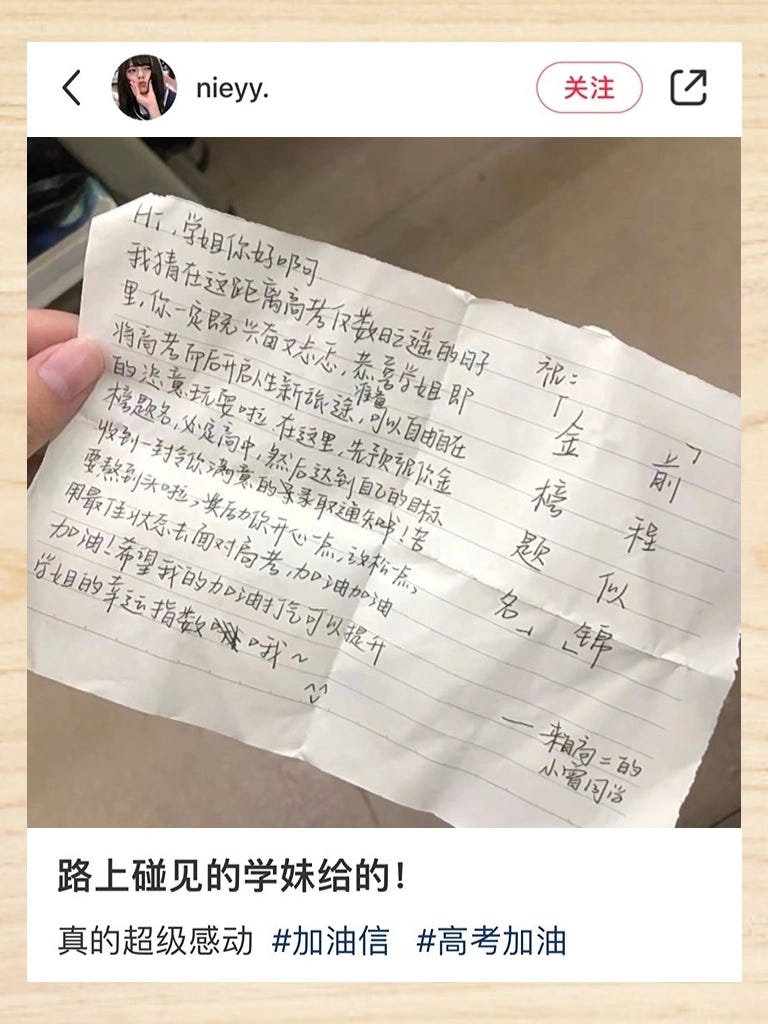 nieyy.
关注
Hi，学姐你好呀
我猜在这距离高考仅数日之遥的日子
里，你一定既兴奋又忐忑，恭喜学姐即
将高考而后开启人生新旅途，可以自由自在
的恣意玩耍啦，在这里，先预祝你金
榜题名，必定高中，然后达到自己的目标
收到一封令你满意的录取通知书！苦
要熬到头啦，奖励你开心一点，放松点，
用最佳状态去面对高考，加油加油
加油！希望我的加油打气可以提升
学姐的幸运指数哦～
祝：
「金榜题名」
「前程似锦」
— 来自高二的
小宵同学
路上碰见的学妹给的！
真的超级感动 #加油信 #高考加油